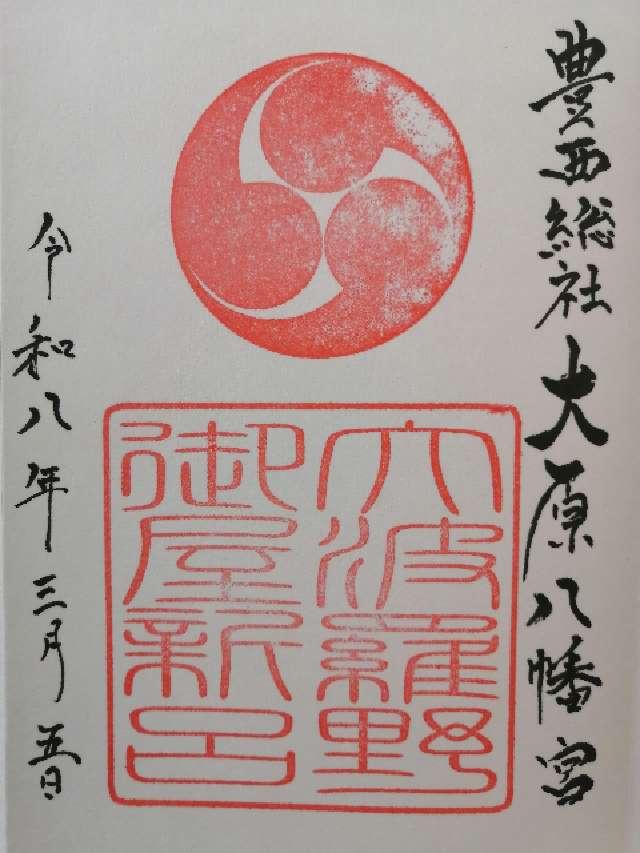 豊西総社大原八幡宮
大波羅野
御屋新呂
令和八年三月五日